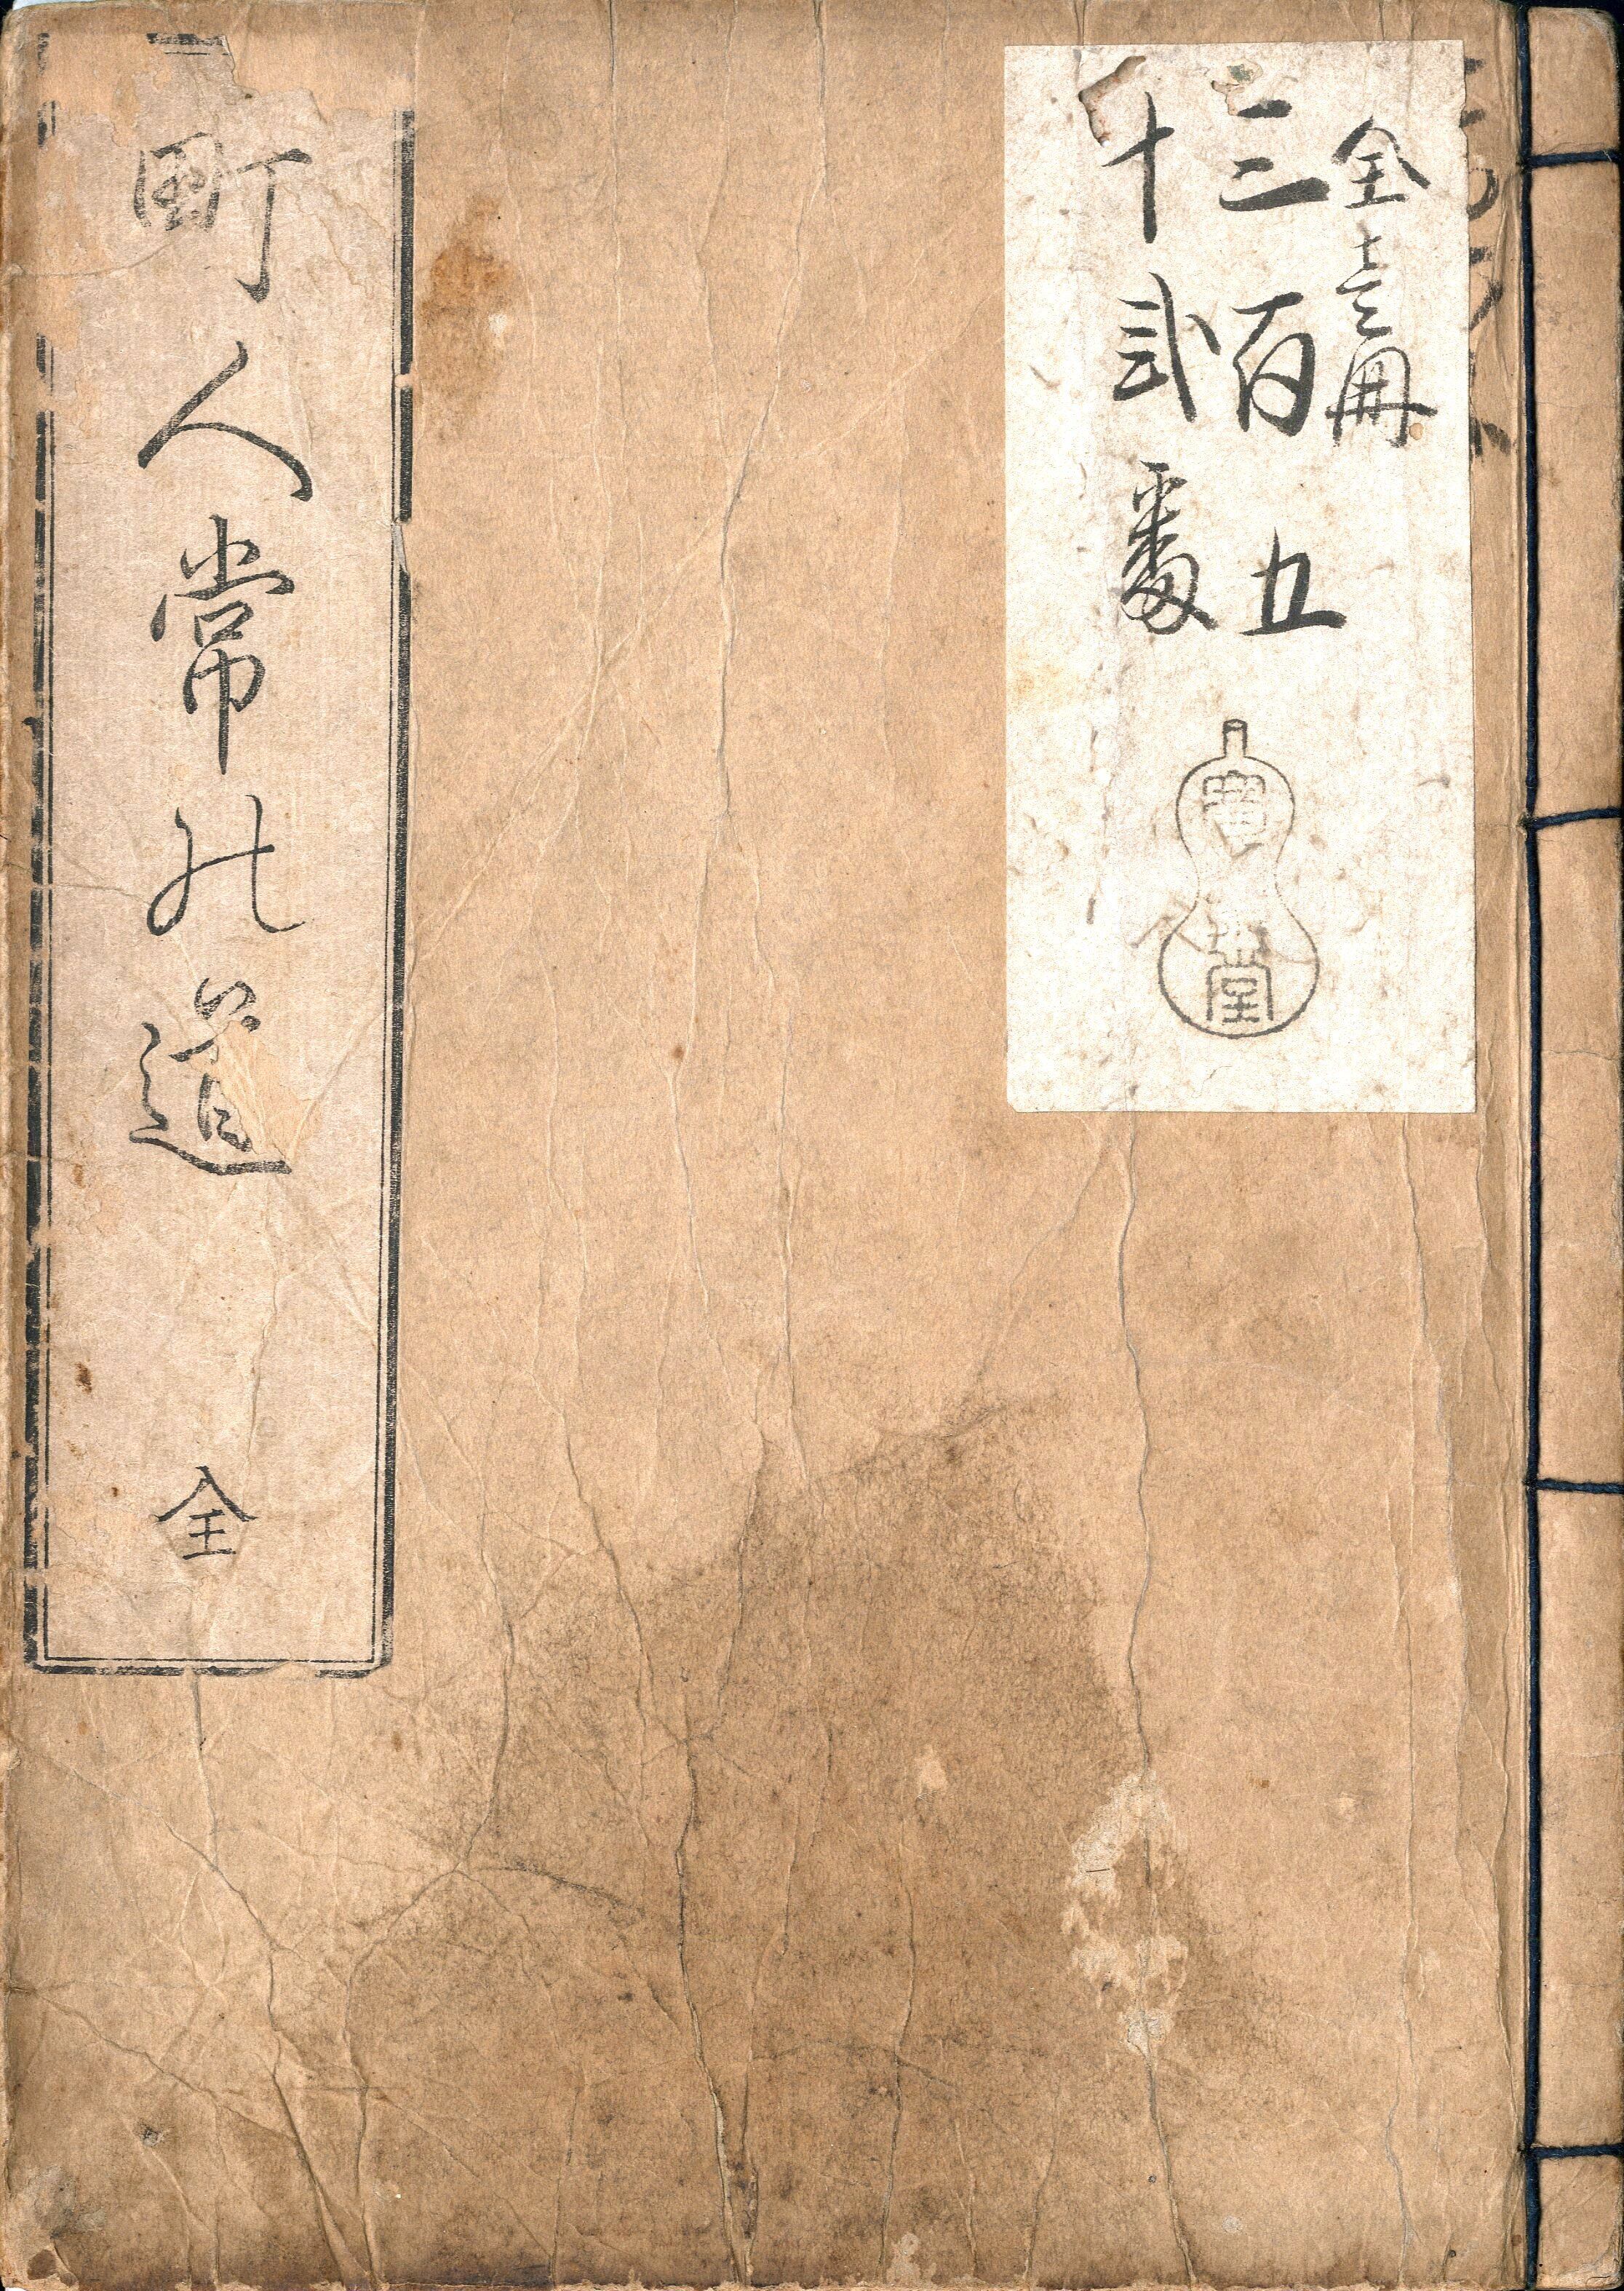 全壹冊
三百五
十弐番
堂
町人常の道
全